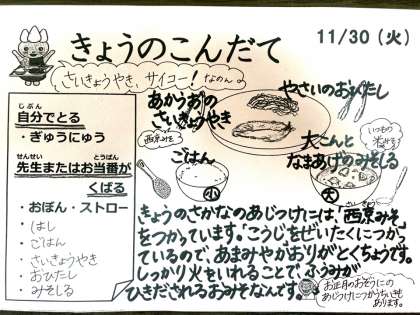 きょうのこんだて
11/30(火)
さいきょうやき、サイコー!なのん♪
自分でとる
じぶん
・ぎゅうにゅう
先生またはお当番が
せんせい とうばん
くばる
・おぼん・ストロー
・はし
・ごはん
・さいきょうやき
・おひたし
・みそしる
あかうおの
さいきょうやき
西京みそ
やさいのおひたし
ごはん
小
大こんと
なまあげのみそしる
大
きょうのさかなのあじつけには、「西京みそ」
をつかっています。「こうじ」をぜいたくにつかっ
ているので、あまみやかおりがとくちょうです。
しっかり火をいれることで、ふうみが
ひきだされるおみそなんです。
お正月のおぞうにの
あじつけにつかうちいきも
あります。